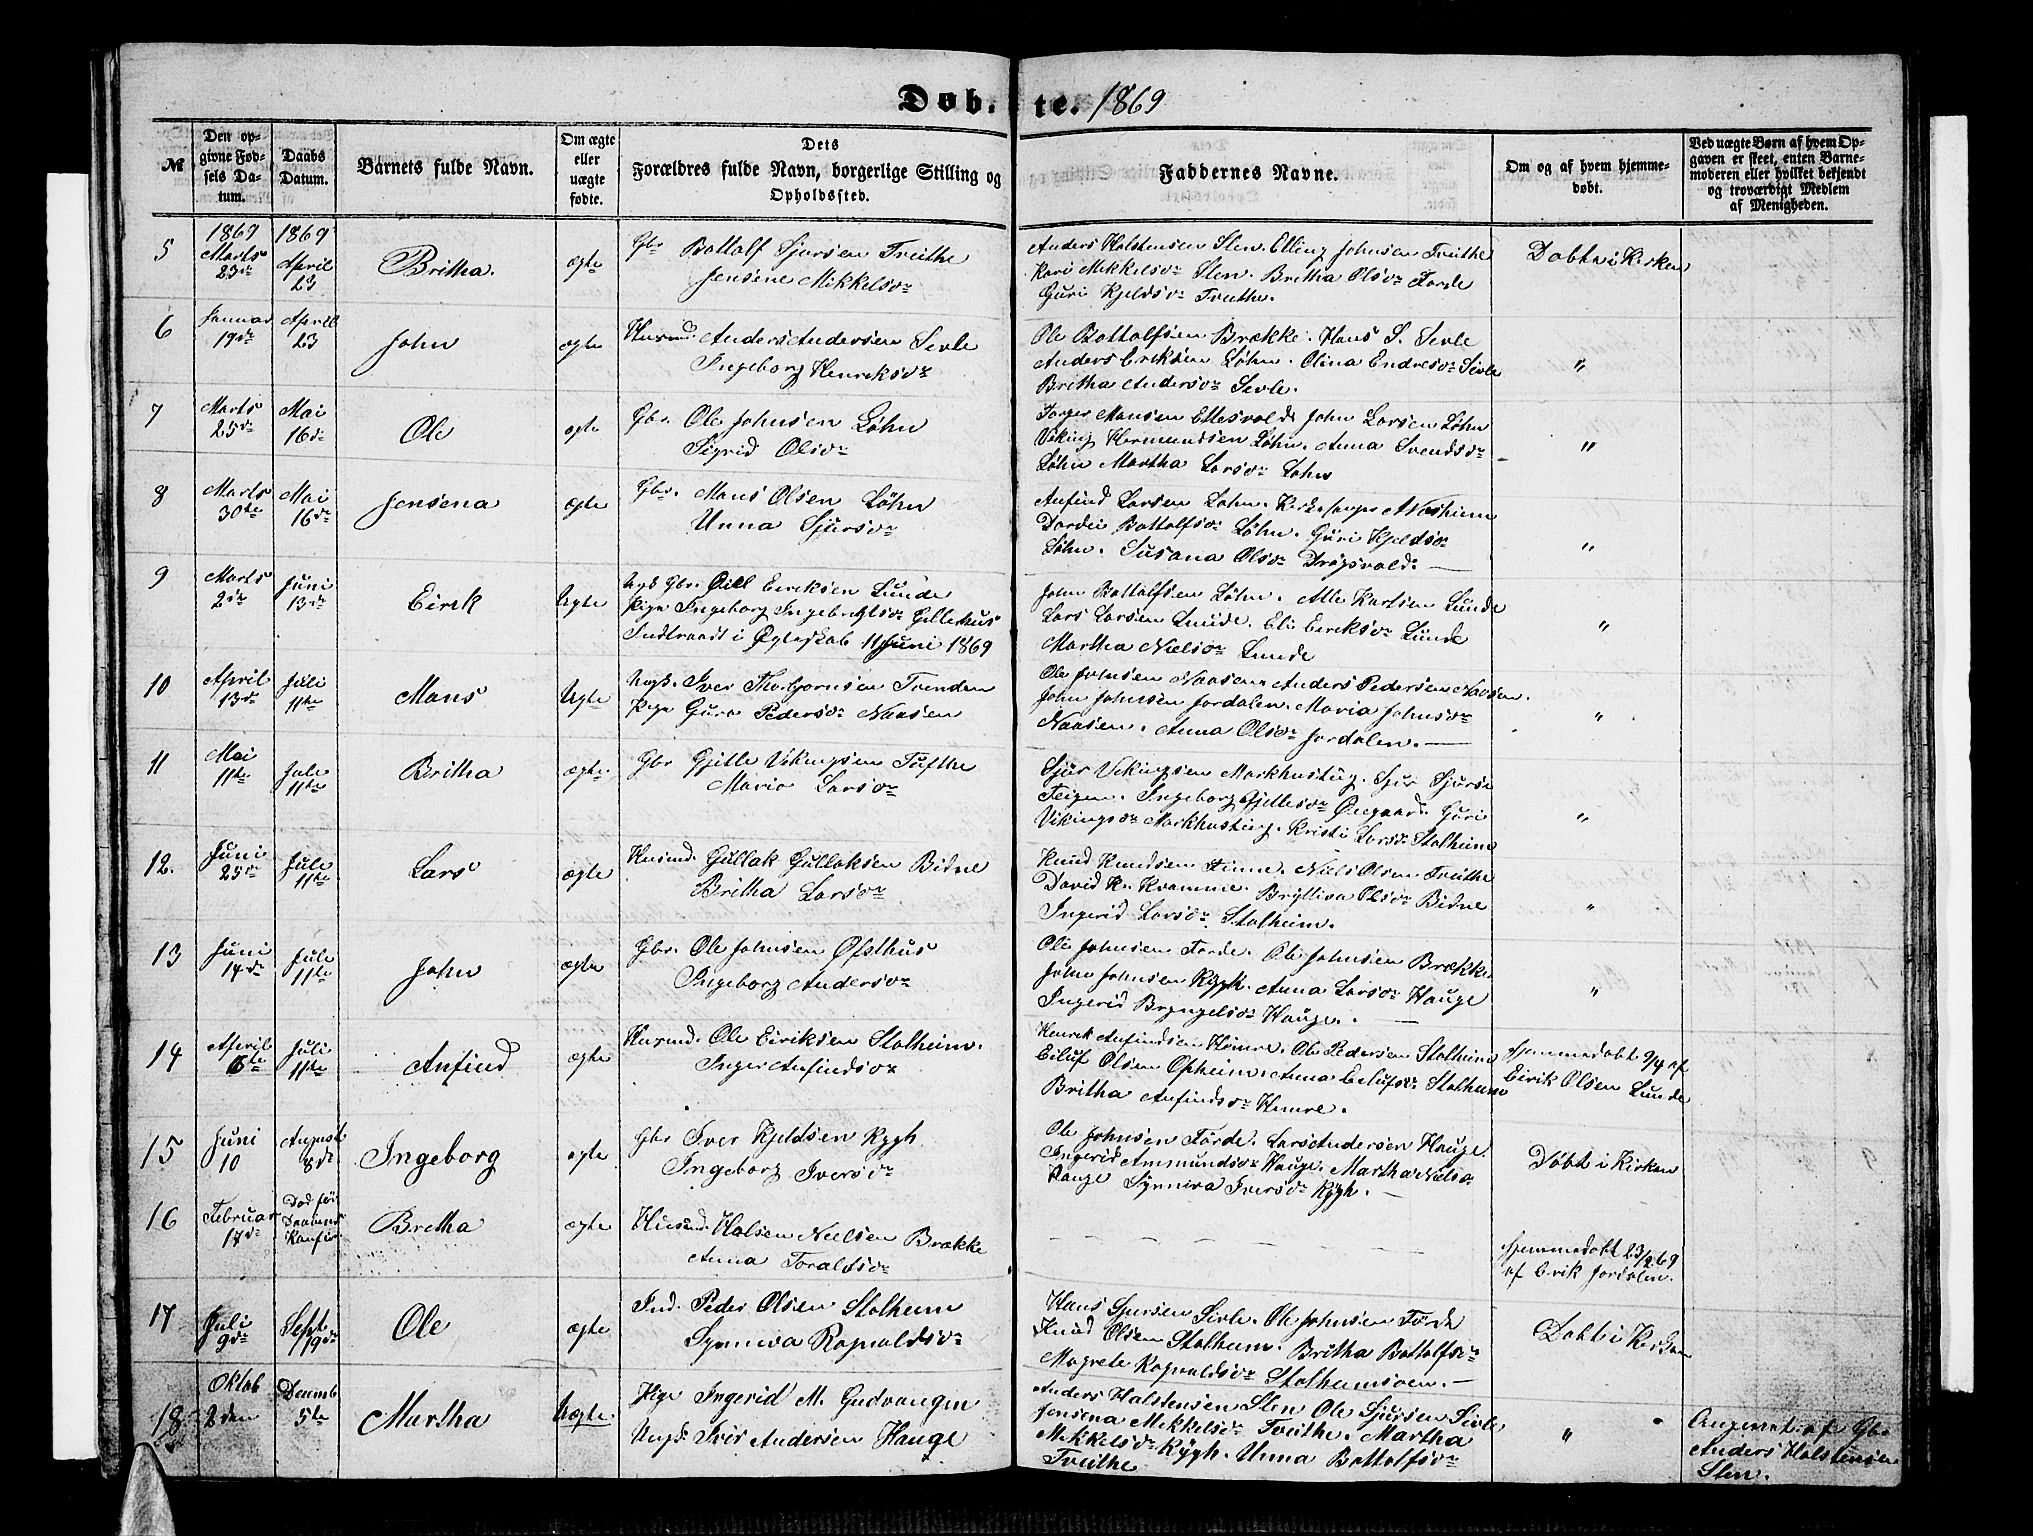 Døb- te. 1869
№
Den op-
givne Fød-
sels Da-
tum.
Daabs
Datum.
Barnets fulde Navn.
Om ægte
eller
uægte
fødte.
Dets
Forældres fulde Navn, borgerlige Stilling og
Opholdssted.
Faddernes Navne.
Om og af hvem hjemme-
døbt.
Ved uægte Børn af hvem Op-
gaven er skeet, enten Barne-
moderen eller hvilket bekjendt
og troværdigt Medlem
af Menigheden.
5
1869
Marts
23de
1869
April
23
Britha.
ægte
Gbr Bottolf Sjursen Treithe
Jensene Mikkelsdr
Anders Halstensen Slen. Elling Johnsen Treithe
Kari Mikkelsdr Slen. Britha Olsdr Førde
Guri Kjeldsdr Treithe.
Døbt i Kirken
6
Januar
19de
April
23
John
ægte
Husmd Anders Andersen Sivle
Ingeborg Henriksdr
Ole Bottolfsen Brække. Hans S. Sivle
Anders Eriksen Løhn. Olina Endresdr Sivle
Britha Andersdr Sivle.
"
7
Marts
25de
Mai
16de
Ole
ægte
Gbr. Ole Johnsen Løhn
Sigrid Olsdr
Torger Monsen Ettesvold John Larsen Løhn
Viking Hermundsen Løhn. Anna Svendsdr
Løhn Martha Larsdr Løhn
"
8
Marts
30te
Mai
16de
Jensena
ægte
Gbr. Mons Olsen Løhn
Unna Sjursdr
Anfind Larsen Løhn. Kirkesanger Aasheim
Dordei Bottolfsdr Løhn. Guri Kjeldsdr
Løhn. Susana Olsdr Drøgsvold. —
"
9
Marts
2de
Juni
13de
Eirik
Uægte
Ugk Gbr. Eiriksen Lunde
Pige Ingeborg Ingebrigtsdr Gillerhus
Indtraadt i Ægteskab 11 Juni 1869
John Bottolfsen Løhn. Atle Lunde
Lars Larsen Lunde. Eli Eiriksdr Lunde
Martha Nielsdr Lunde
"
10
April
13de
Juli
11te
Mons
Uægte
Ungk. Iver Thorbjørnsen Trenden
Pige Guro Pedersdr Naasen
Ole Johnsen Naasen Anders Pedersen Naasen.
John Johnsen Jordalen. Maria Johnsdr
Naasen. Anna Olsdr Jordalen. —
"
11
Mai
11te
Juli
11te
Britha
ægte.
Gbr Gjitle Vikingsen Tufthe
Maria Larsdr
Sjur Vikingsen Markhusteig. Sjur Sjurs
Teigen. Ingeborg Gjitlesdr Øvegaard. Guri
Vikingsdr Markhusteig. Kristi Larsdr Stalheim
"
12.
Juni
25de
Juli
11te
Lars
ægte
Husmd. Gullak Gullaksen Bidne
Britha Larsdr
Knud Knudsen Finne. Niels Olsen Treithe
David K. Kvamme. Brytteva Olsdr Bidne
Ingerid Larsdr Stalheim.
"
13
Juni
14de
Juli
11te
John
ægte
Gbr. Ole Johnsen Øfsthus
Ingeborg Andersdr
Ole Johnsen Førde. Ole Johnsen Brække.
John Johnsen Rygh. Anna Larsdr Hauge
Ingerid Bryngelsdr Hauge. —
"
14
April
6te
Juli
11te
Anfind
ægte
Husmd. Ole Eiriksen Stalheim.
Inger Anfindsdr
Henrik Anfindsen Himre. Ole Pedersen Stalheim
Eiluf Olsen Opheim. Anna Eilufsdr Stalheim
Britha Anfindsdr Himre.
Hjemmedøbt 9/4 af
Eirik Olsen Lunde
15
Juni
10
August
8de
Ingeborg
ægte
Gbr Iver Kjeldsen Rygh
Ingeborg Iversdr
Ole Johnsen Førde. Lars Andersen Hauge.
Ingerid Ammundsdr Hauge. Martha Nielsdr
Hauge Synneva Iversdr Rygh. —
Døbt i Kirken
16
Februar
17de
Død før
Daabens
Konfir.
Britha
ægte
Husmd. Nielsen Brække
Anna Toraldsdr
Hjemmedøbt 23/2 69
af Erik Jordalen.
17
Juli
9de
Sept
19de
Ole
ægte
Ind. Peder Olsen Stalheim
Synneva Ragnaldsdr
Hans Sjursen Sivle. Ole Johnsen Førde
Knud Olsen Stalheim. Britha Bottolfsdr
Magrete Ragnaldsdr Stalheimsøen. —
Døbt i Kirken
18
Oktob
2den
Decemb
5te
Martha
Uægte
Pige Ingerid M. Gudvangen
Ungk. Iver Andersen Hauge
Anders Halstensen Slen Ole Sjursen Sivle
Jensena Mikkelsdr Treithe. Martha
Mikkelsdr Rygh. Unna Bottolfsdr
Treithe
"
Angivet af Gbr
Anders Halstensen
Slen.